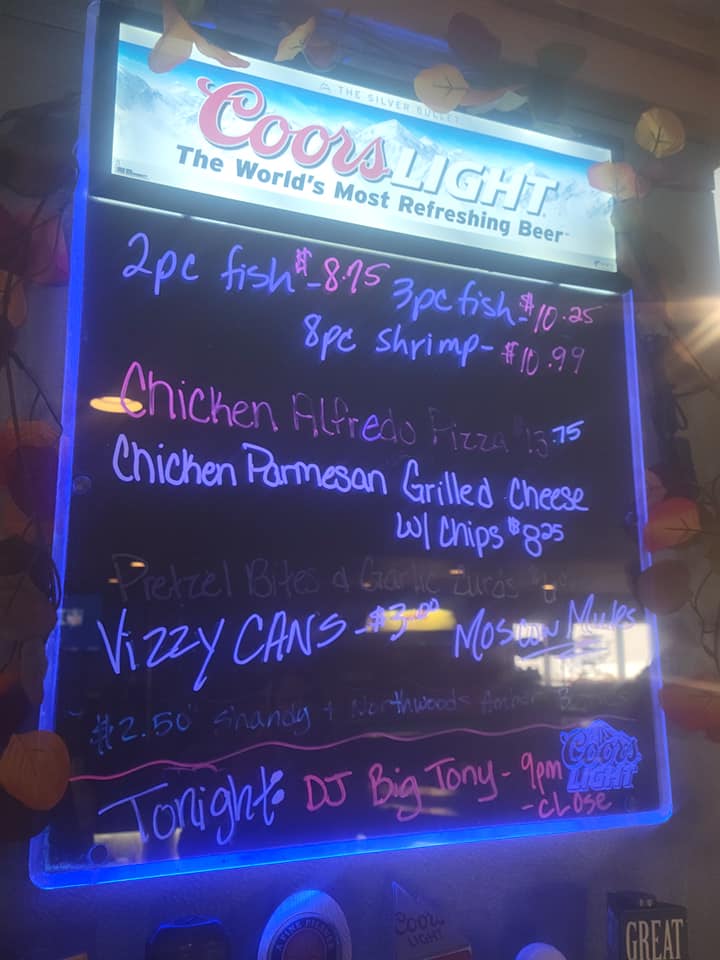 THE SILVER BULLET
Coors LIGHT
The World's Most Refreshing Beer
2pc fish - $8.75
3pc fish - $10.25
8pc shrimp - $10.99
Chicken Alfredo Pizza $13.75
Chicken Parmesan Grilled Cheese
w/ Chips $8.25
Pretzel Bites & Garlic Curds
Vizzy CANS - $3.00
Moscow Mules
$2.50 Shandy & Northwoods Amber
Coors
LIGHT
Tonight: DJ Big Tony - 9pm
- CLOSE
Coors
LIGHT
GREAT